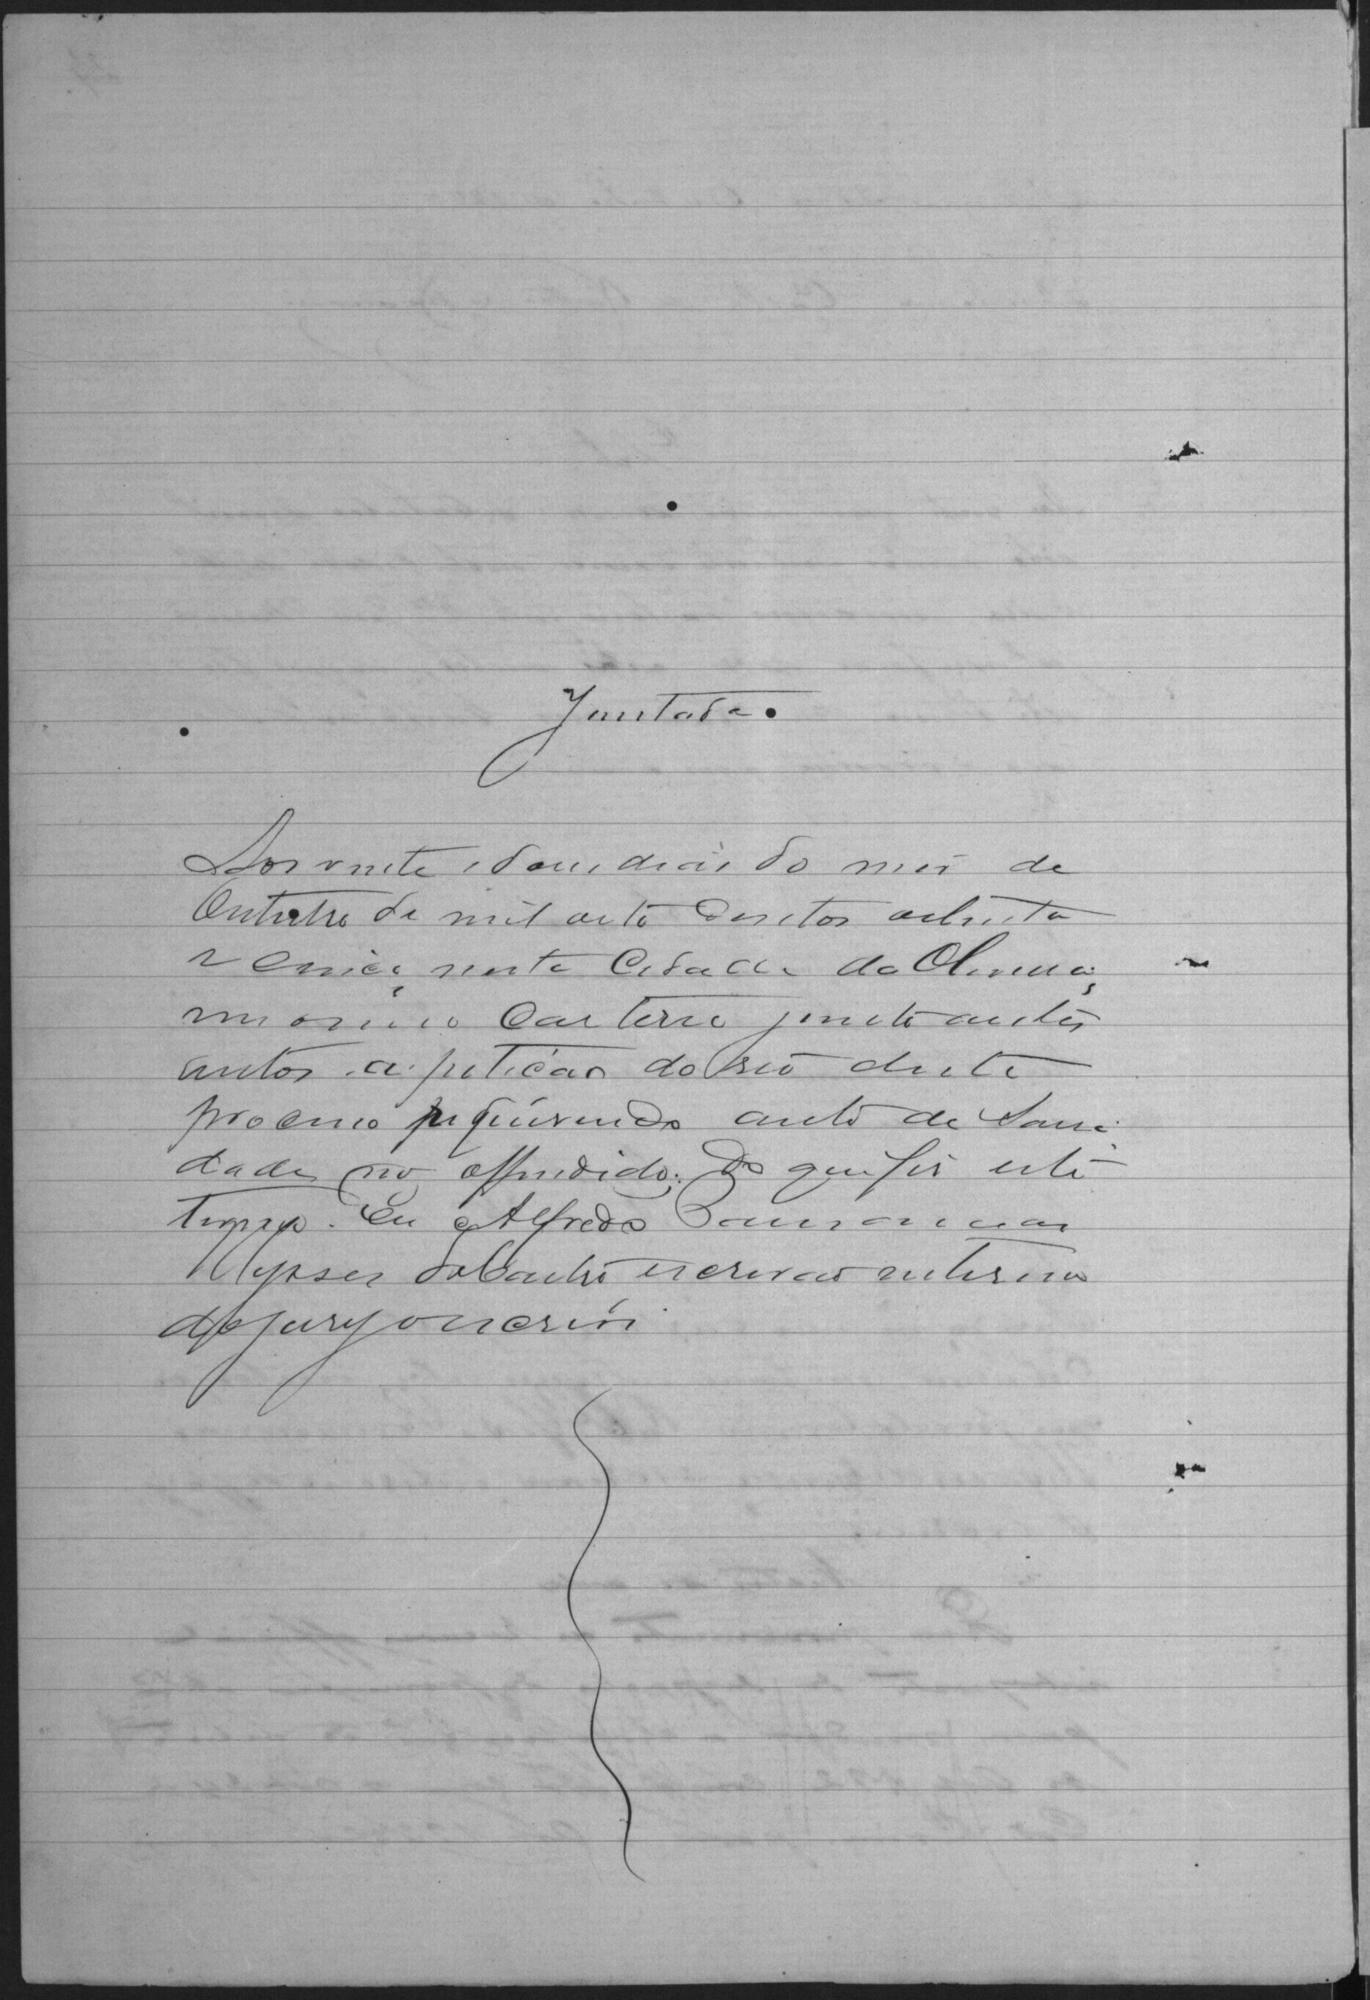 Juntada.
Aos vinte e dous dias do mes de
Outubro de mil oito centos oitenta
e cinco, nesta Cidade da Oliveira,
em o meu Cartorio junto a estes
autos a petição do reo deste
processo requerendo auto de Sani-
dade no offendido; Do que fiz este
termo. Eu Alfredo
Ulysses de Castro escrivão interino
do jury o escrevi